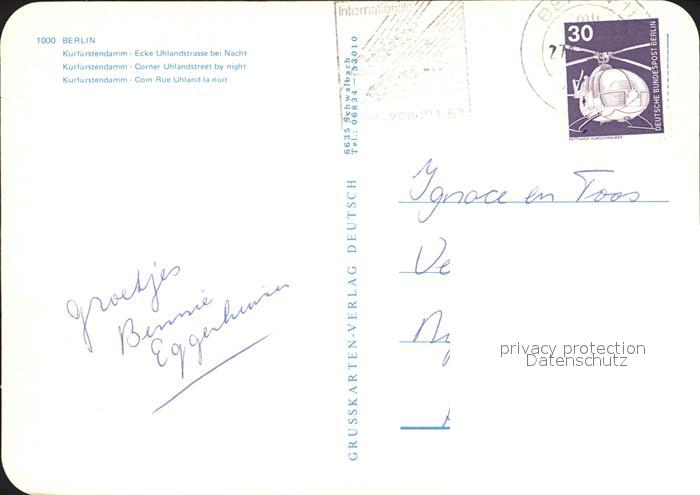 1000 BERLIN
Kurfürstendamm - Ecke Uhlandstrasse bei Nacht
Kurfürstendamm - Corner Uhlandstreet by night
Kurfürstendamm - Coin Rue Uhland la nuit
Groetjes
Bennie
Eggenhuisen
GRUSSKARTEN-VERLAG DEUTSCH
6635 Schwalbach
Tel.: 06834 - 53010
Internationale
30
DEUTSCHE BUNDESPOST BERLIN
Ignace en Toos
Ve
Ny
privacy protection
Datenschutz